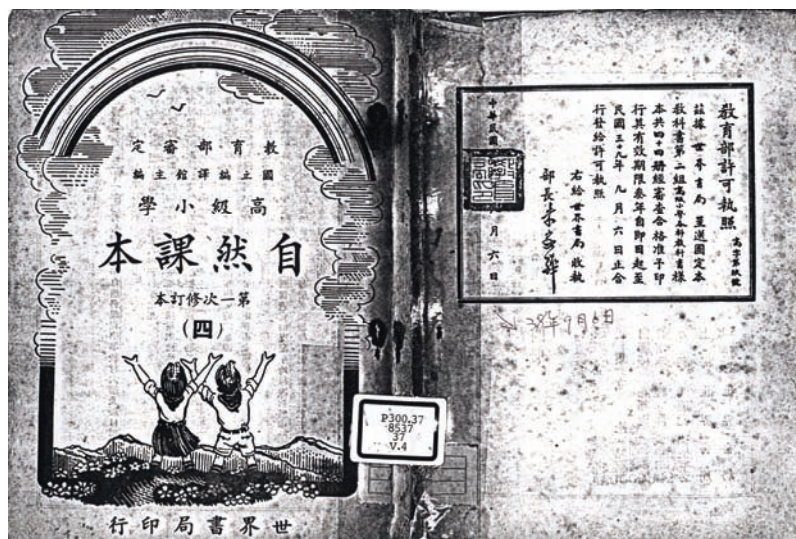 教育部審定
國立編譯館主編
高級小學
自然課本
第一次修訂本
(四)
世界書局印行
P300.37
8537
37
V.4
教育部許可執照
茲據世界書局呈送國定本
教科書第二組高級小學各科教科書樣
本共四十四册經審查合格准予印
行其有效期限叁年自即日起至
民國三十九年九月六日止合
行發給許可執照
右給世界書局收執
部長朱家驊
中華民國 月六日
年9月6日